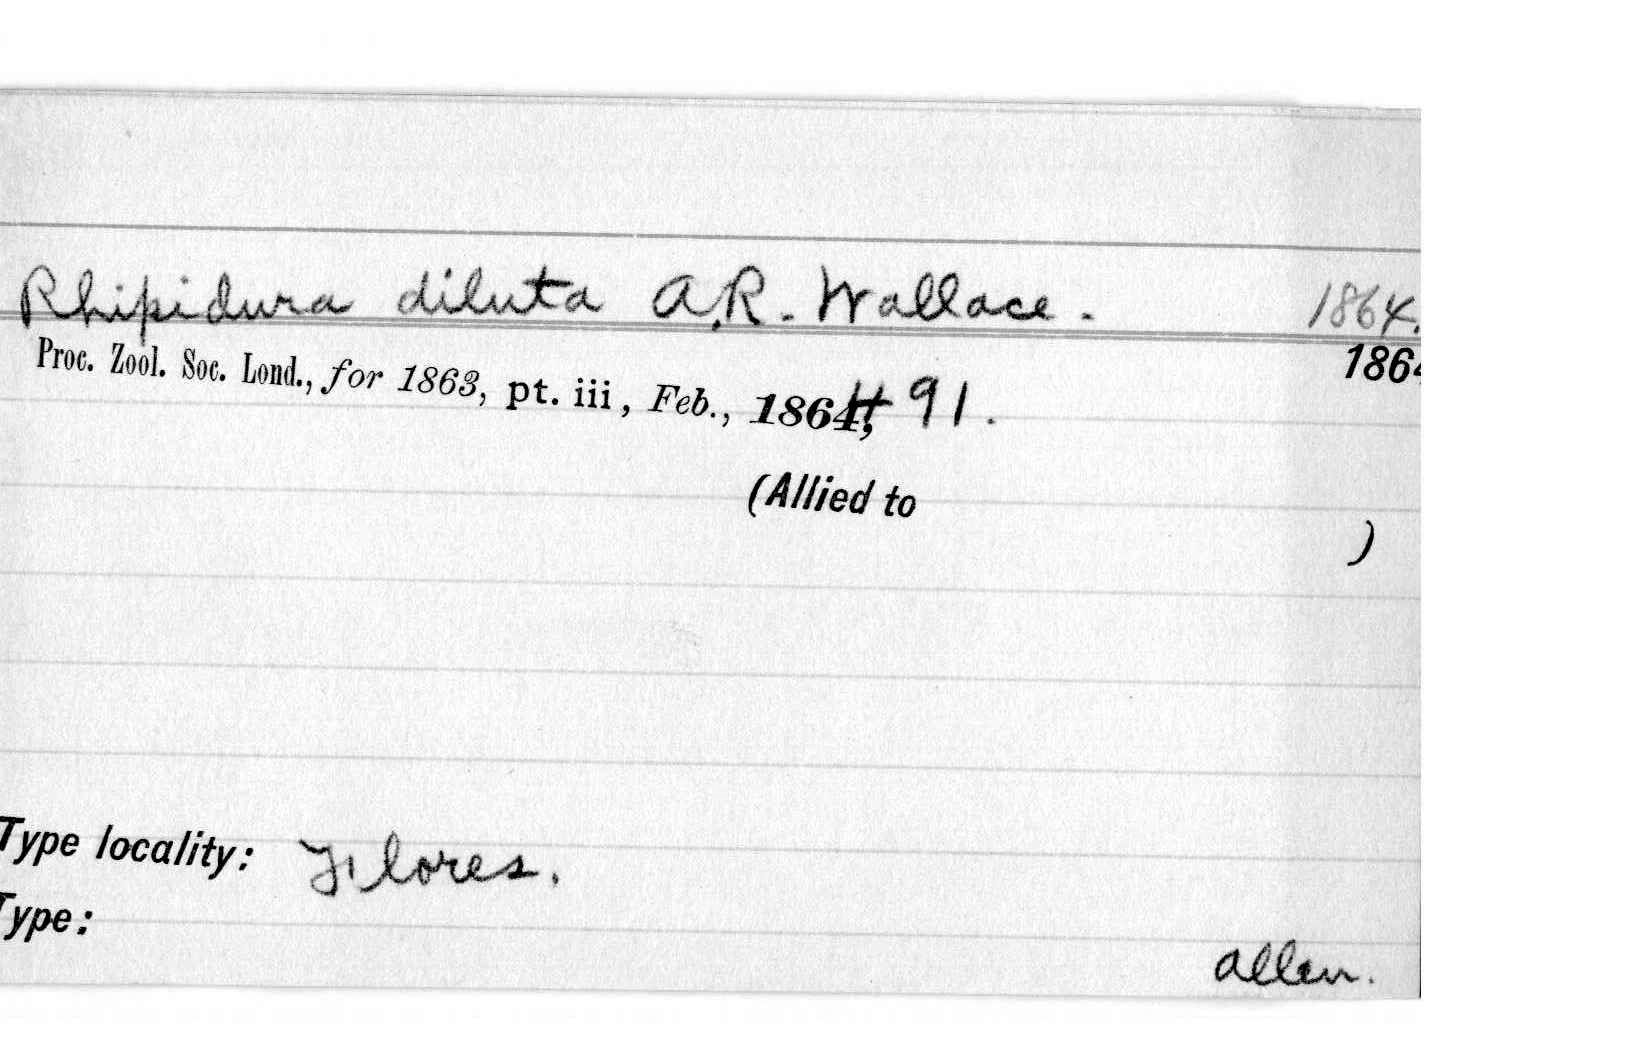 Rhipidura diluta A.R. Wallace. 1864.
Proc. Zool. Soc. Lond., for 1863, pt. iii, Feb., 1864, 491. 1864
(Allied to
)
Type locality: Flores.
Type:
Allen.